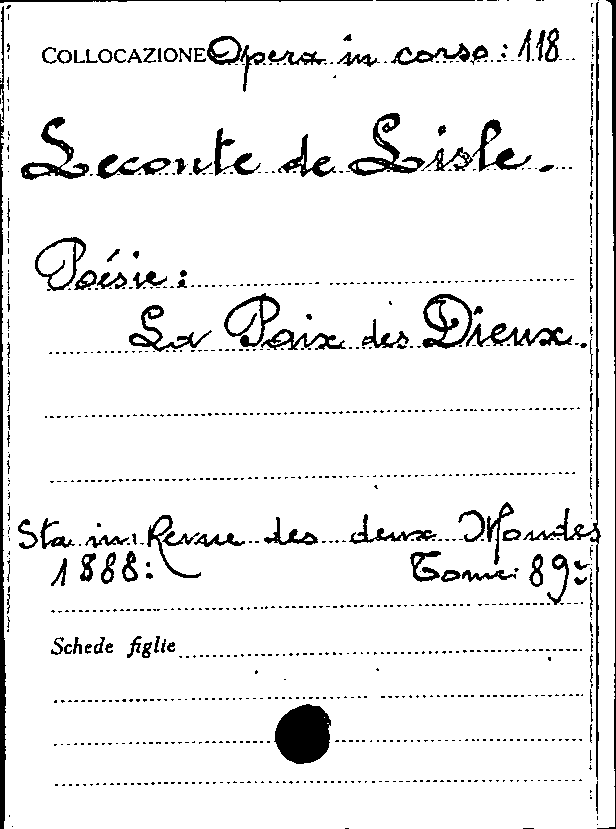 COLLOCAZIONE Opera in corso: 118
Leconte de Lisle.
Poésie:
La Paix des Dieux.
Sta in: Revue des deux Mondes
1888: Tome: 89:
Schede figlie